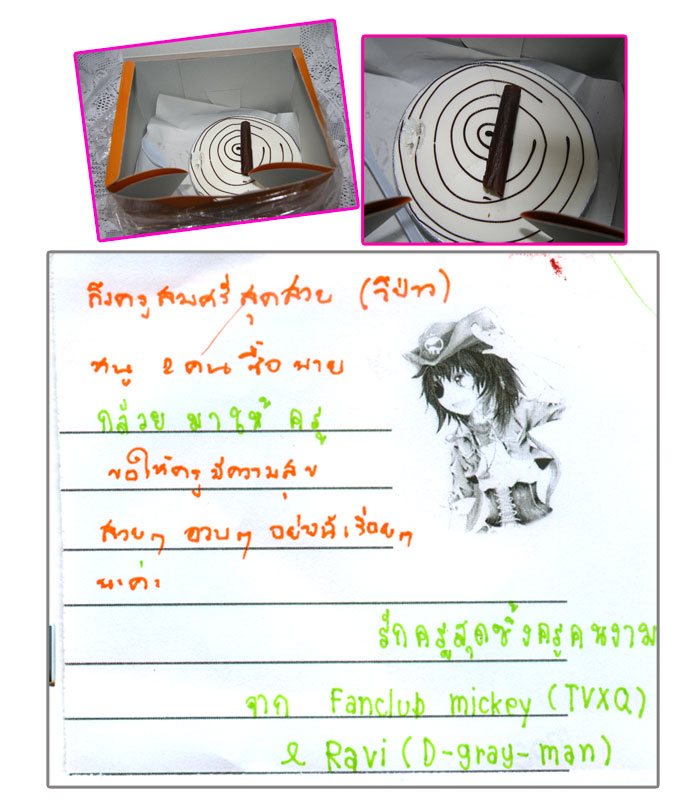 ถึงครูสมศรี สุดสวย (รึป่าว)
หนู 2 คน ซื้อ พาย
กล้วย มาให้ ครู
ขอให้ครูมีความสุข
สวยๆ อวบๆ อย่างนี้เรื่อยๆ
นะค่ะ
รักครูสุดซึ้งครูคนงาม
จาก Fanclub mickey (TVXQ)
& Ravi (D-gray-man)